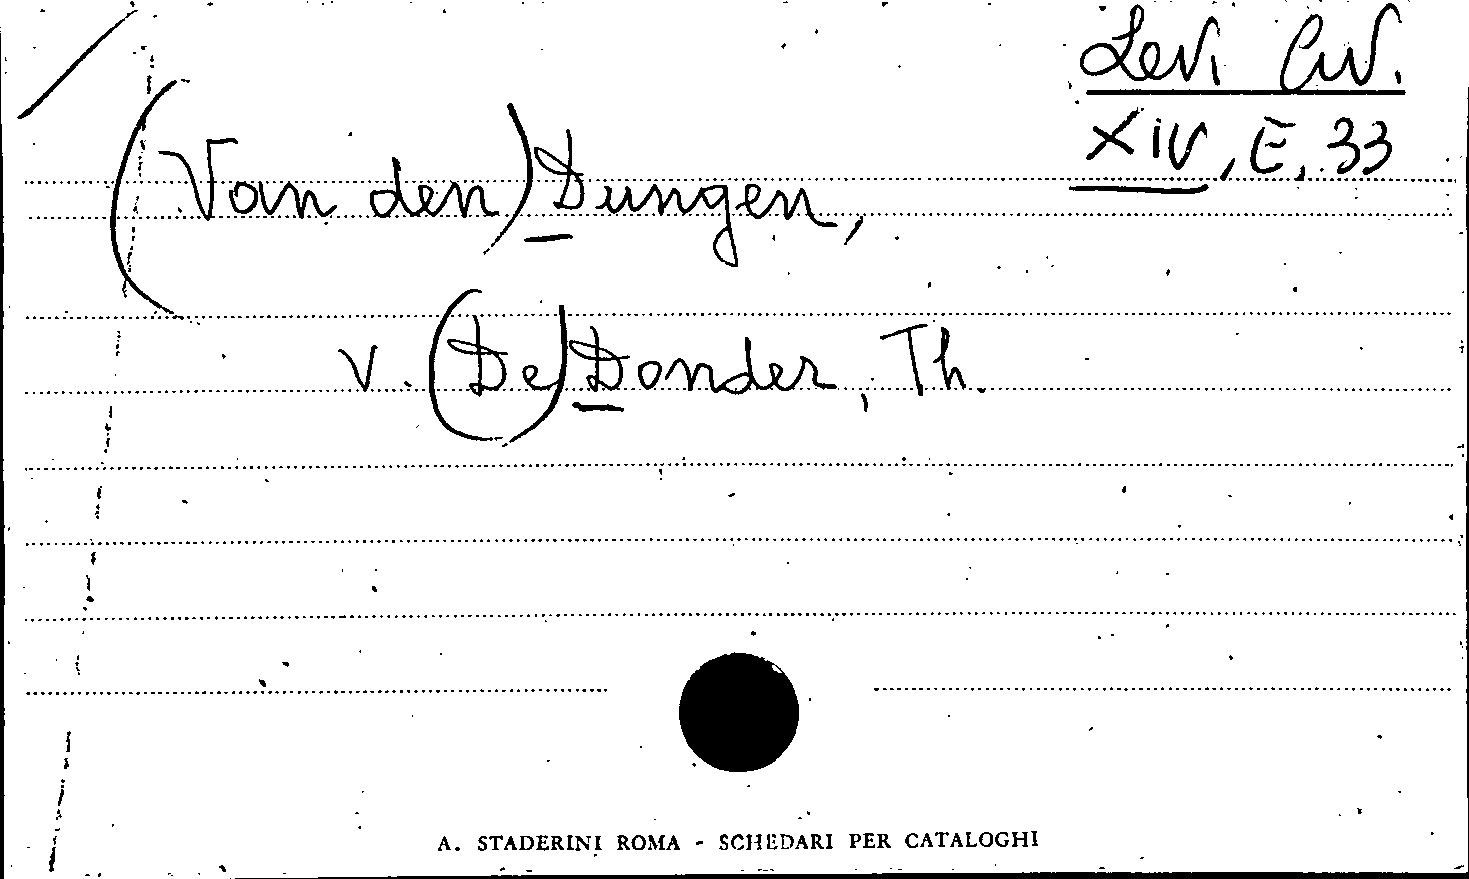 Levi Civ.
XIV, E, 33
(Van den) Dungen,
v. (De) Donder, Th.
A. STADERINI ROMA - SCHEDARI PER CATALOGHI